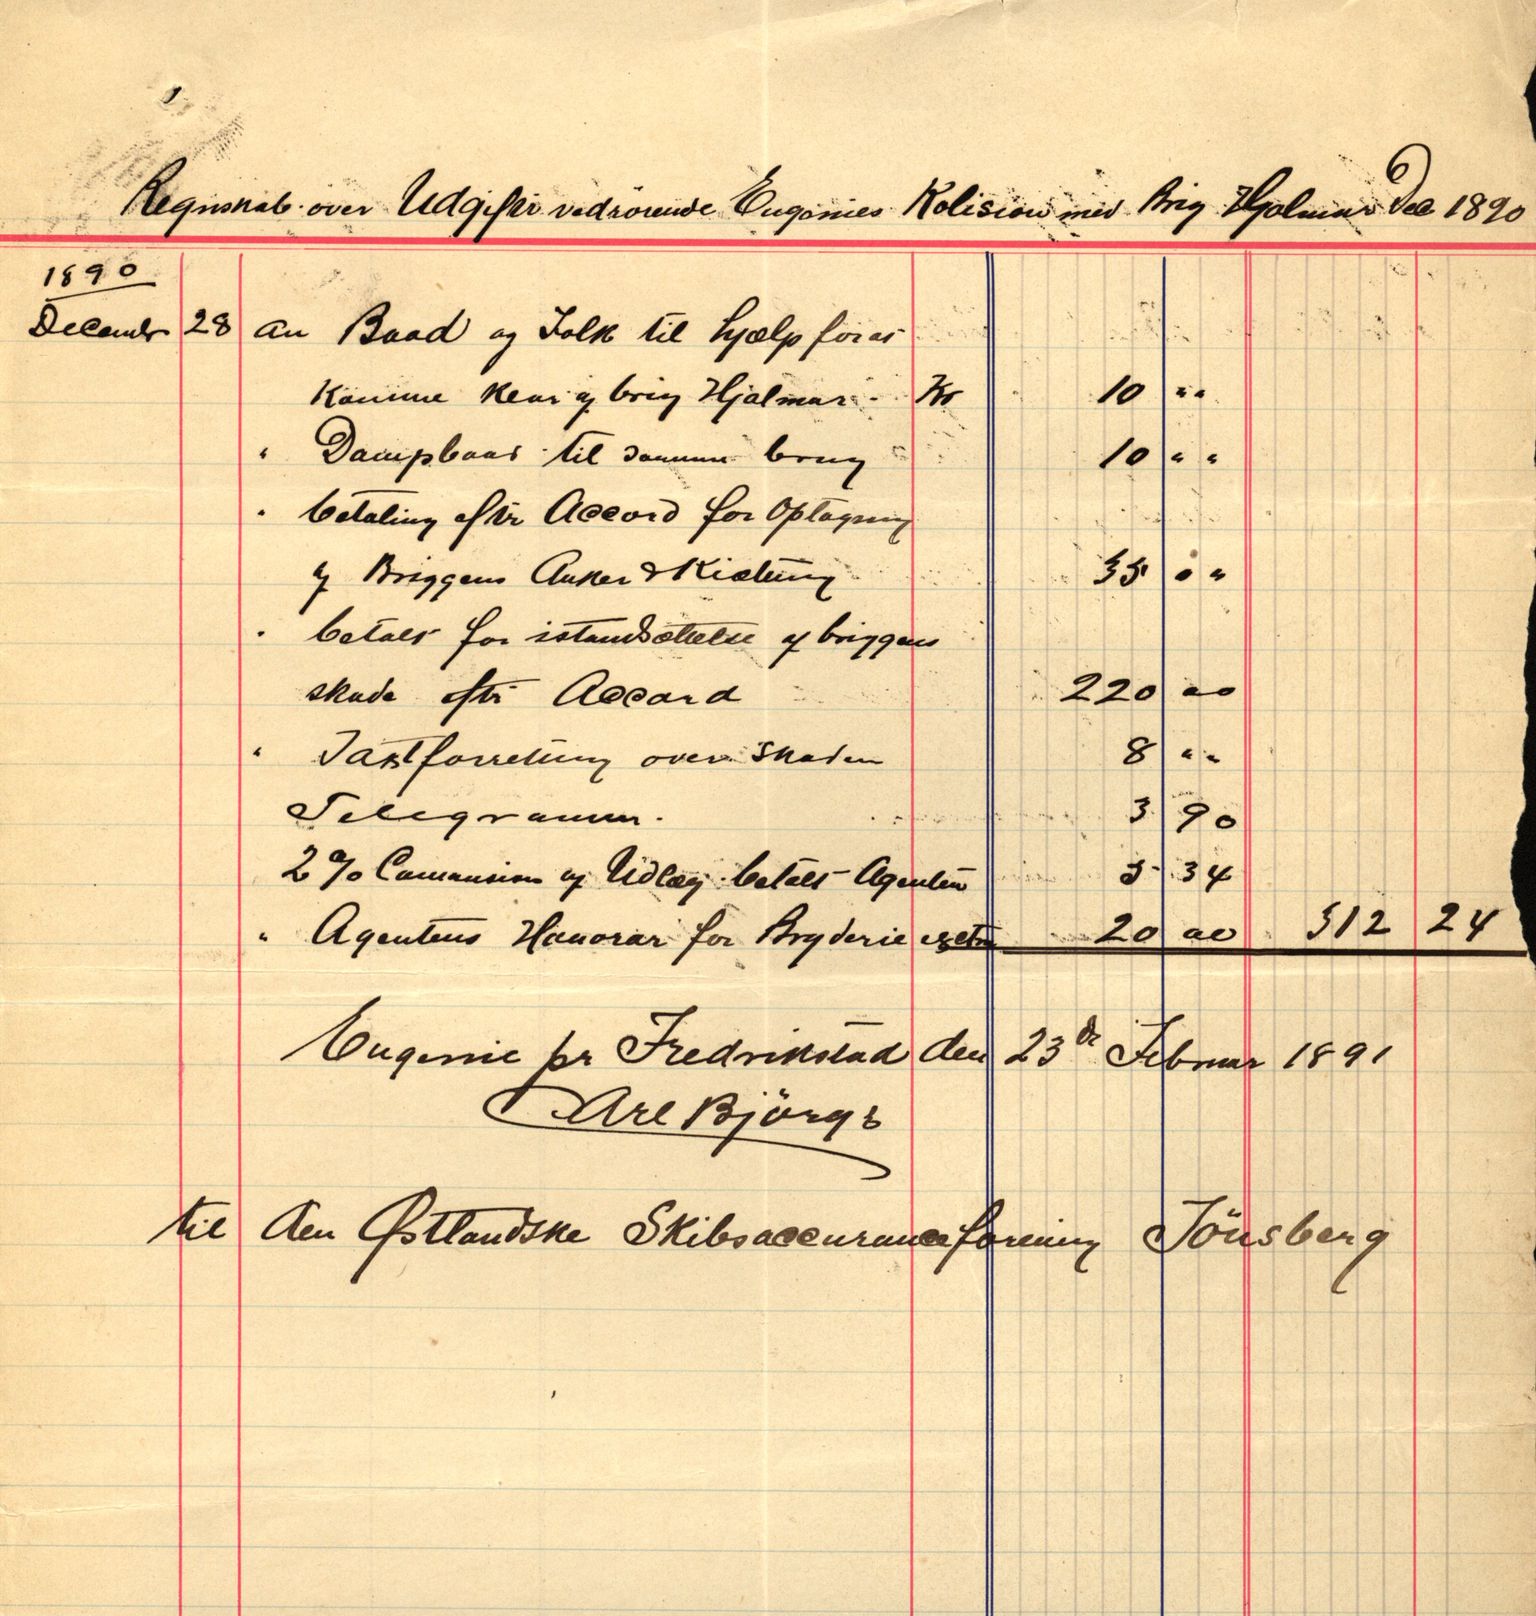 6
Regnskab over Udgifter vedrörende Eugenies Kolision med Brig Hjalmar Dec 1890
1890
December 28 an Baad og Folk til hjælp for at
komme klar af brig Hjalmar Kr 10 " "
" Dampbaad til samme brug 10 " "
" betaling efter Accord for Optagning
af Briggens Anker & Kietting 35 " "
" betalt for istandsættelse af briggens
skade efter Accord 220 " "
" Taxtforretning over Skaden 8 " "
Telegramm. 3 90
2 % Commission af Udlæg betalt Agenten 5 34
" Agentens Honorar for Bryderie 20 " " 312 24
Eugenie pr Fredrikstad den 23de Februar 1891
Carl Björge
til den Østlandske Skibsaccuranceforening Tönsberg